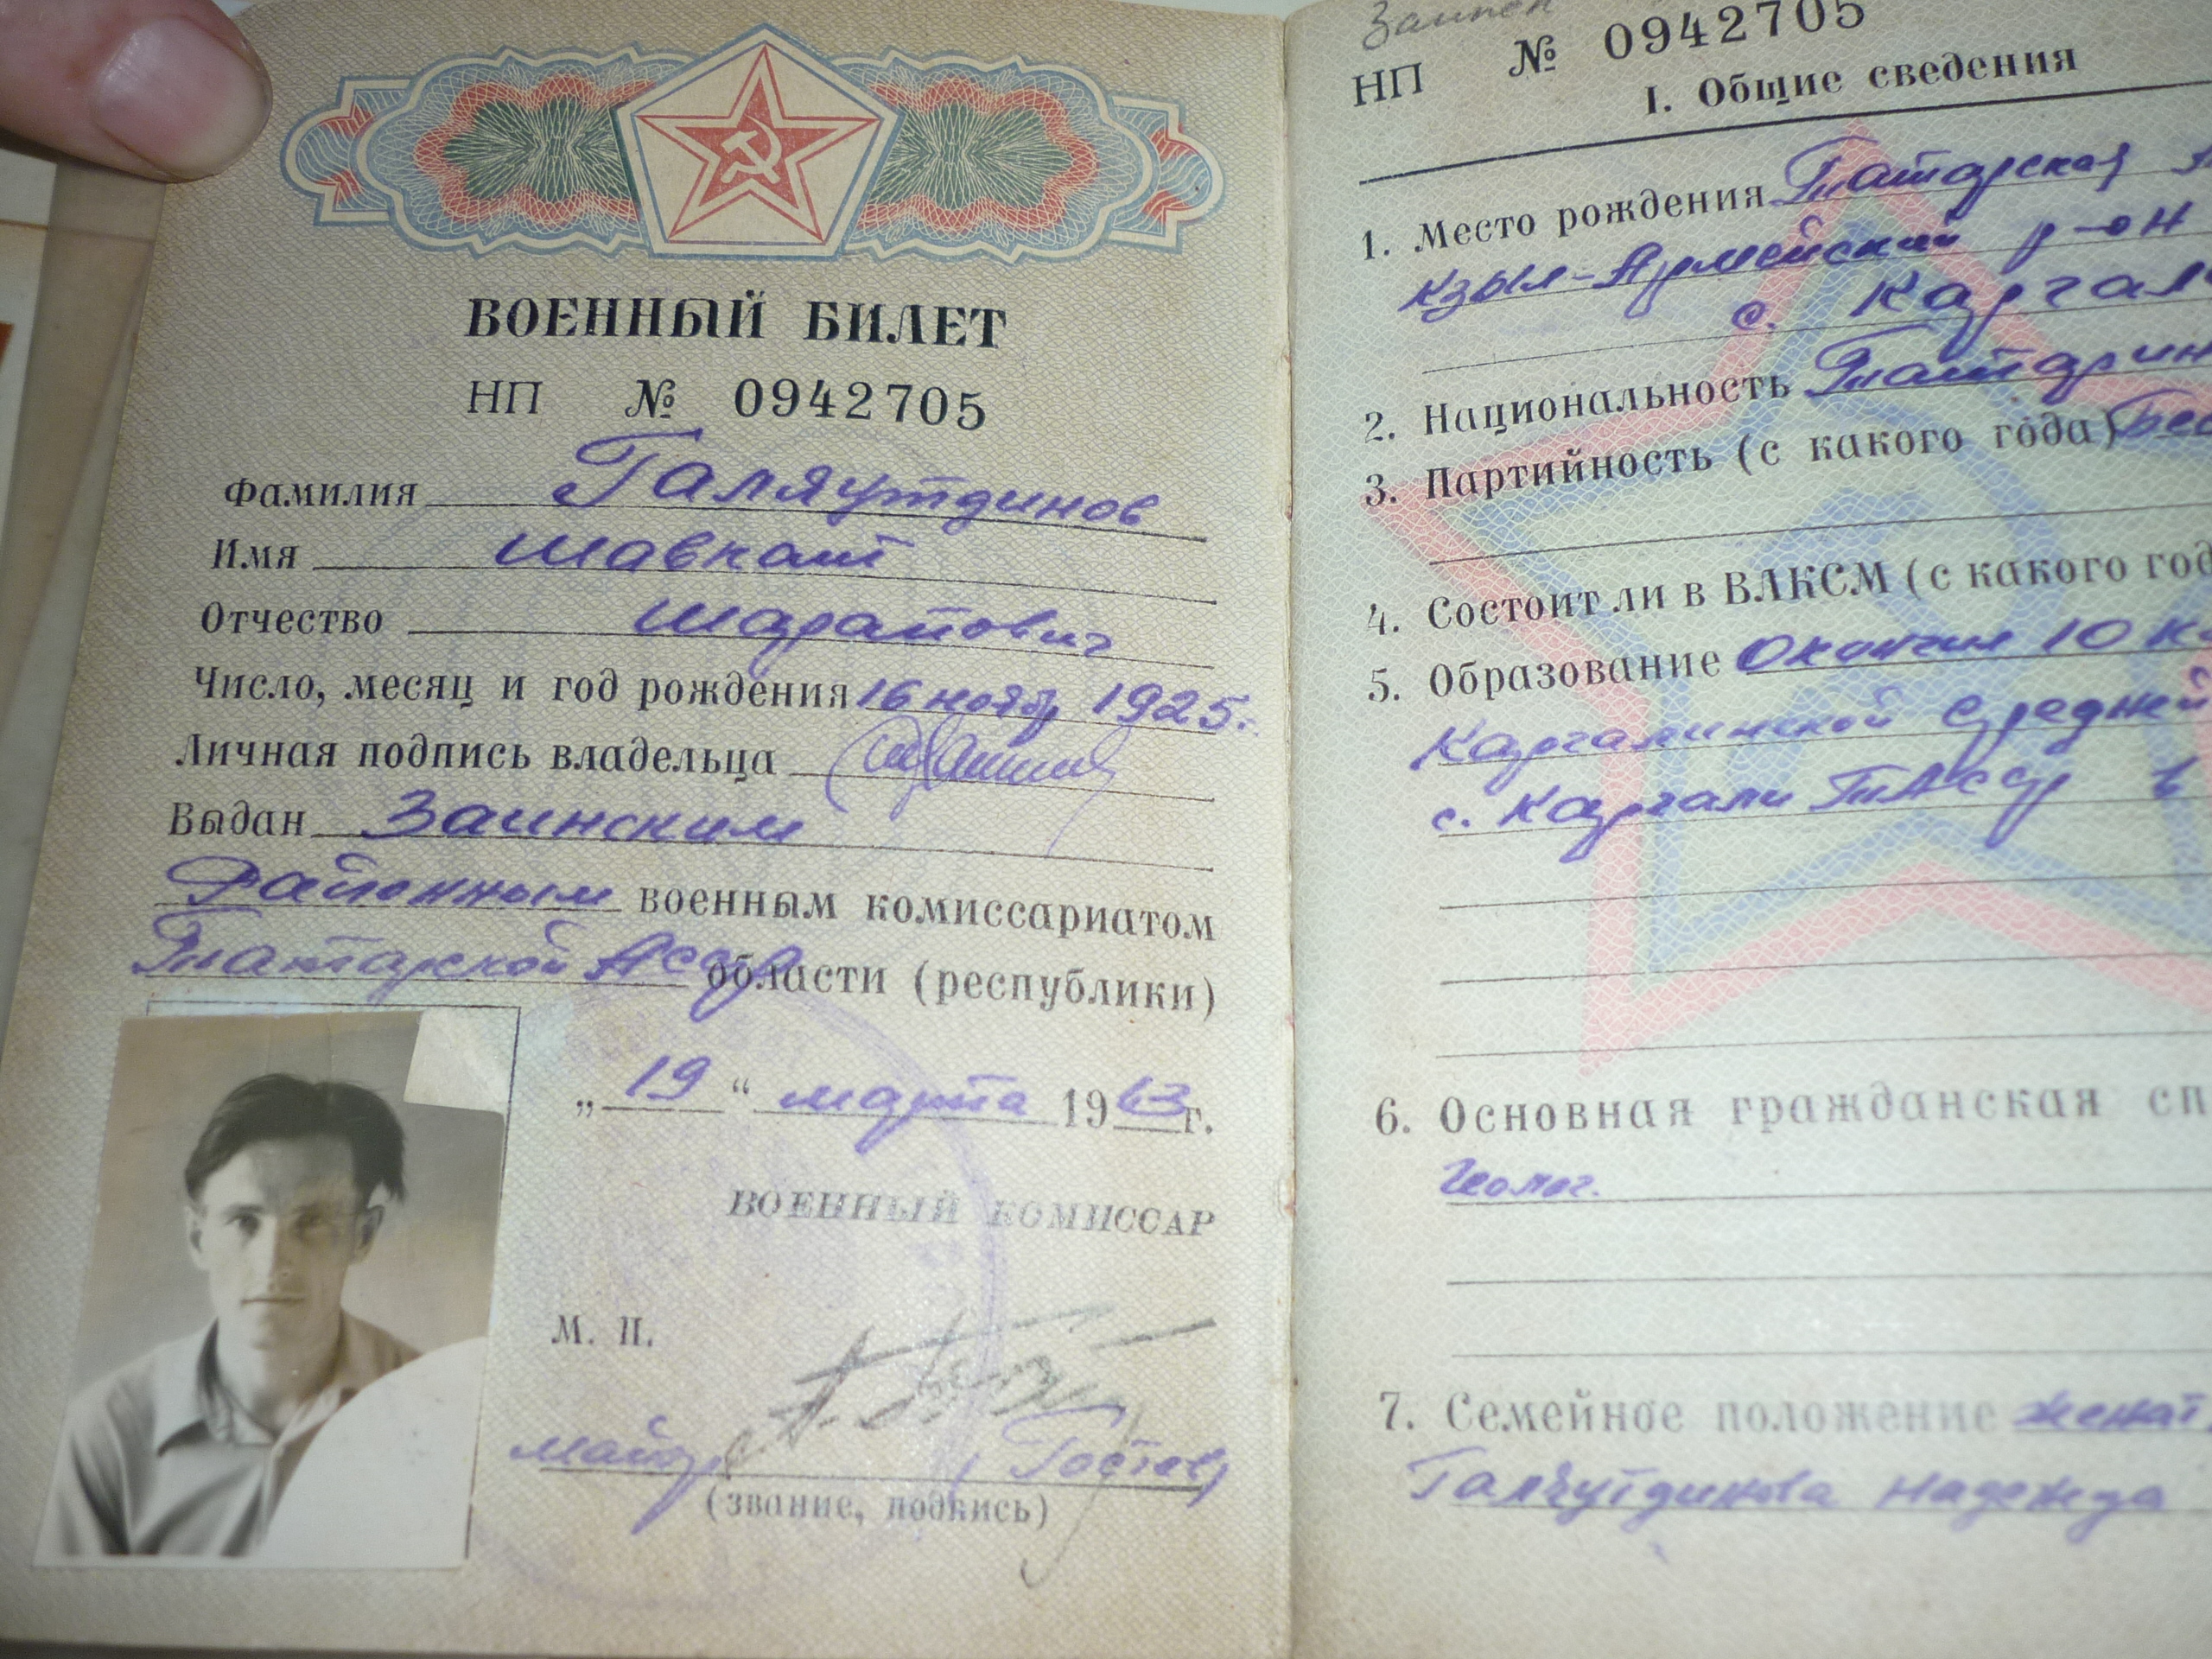 ВОЕННЫЙ БИЛЕТ
НП № 0942705
Фамилия Галяутдинов
Имя Шавкат
Отчество Шарапович
Число, месяц и год рождения 16 ноябр 1925г.
Личная подпись владельца
Выдан Заинским
Районным военным комиссариатом
Татарской АССР области (республики)
„ 19 “ марта 1963 г.
ВОЕННЫЙ КОМИССАР
М. П.
майор Гостев
(звание, подпись)
НП № 0942705
I. Общие сведения
1. Место рождения Татарская
Кзыл-Армейский р-он
с. Каргал
2. Национальность Татарин
3. Партийность (с какого года) Бес
4. Состоит ли в ВЛКСМ (с какого год
5. Образование Окончил 10 к
Каргалинской средней
с. Каргали ТАССР в
6. Основная гражданская сп
Геолог.
7. Семейное положение женат
Галяутдинова Надежда